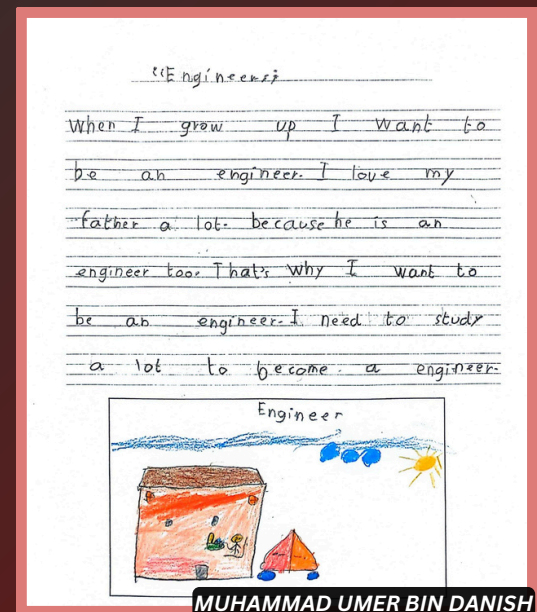 “Engineers”
When I grow up I want to
be an engineer. I love my
father a lot. because he is an
engineer too. That's why I want to
be an engineer. I need to study
a lot to become a engineer.
Engineer
MUHAMMAD UMER BIN DANISH